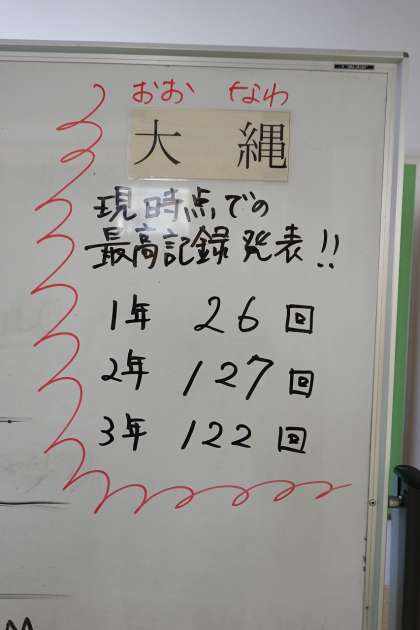 おお なわ
大 縄
現時点での
最高記録発表!!
1年 26回
2年 127回
3年 122回